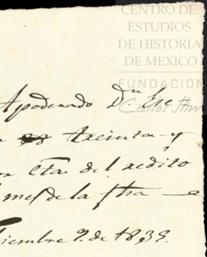 CENTRO DE
ESTUDIOS
DE HISTORIA
DE MEXICO
FUNDACIÓN
Apoderado Dn
treinta y
cta. del redito
mes de la fha
tiembre 9. de 1839.